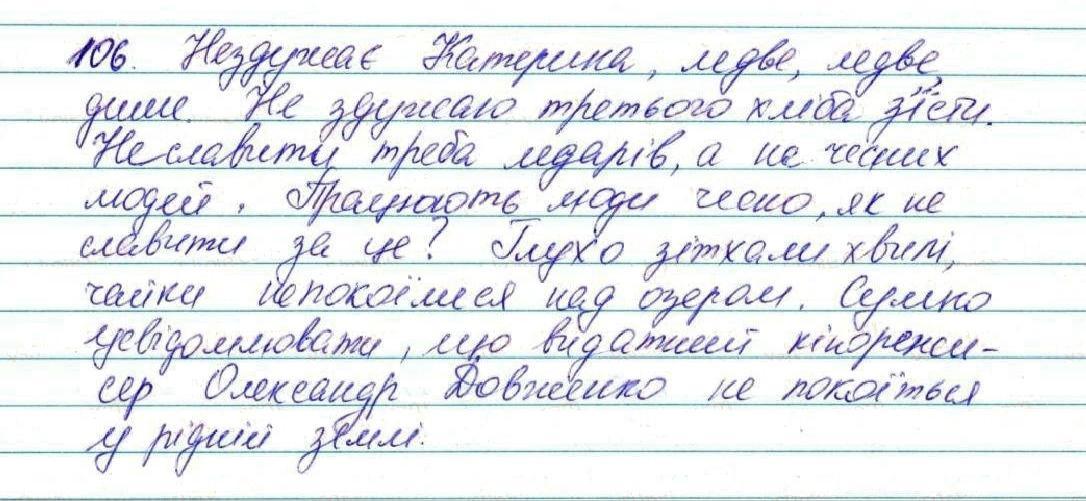 106. Нездужає Катерина, ледве, ледве
дише. Не здужаю третього хліба з'їсти.
Неславити треба ледарів, а не чесних
людей. Працюють люди чесно, як не
славити за це? Глухо зітхали хвилі,
чайки непокоїлися над озером. Сумно
усвідомлювати, що видатний кінорежи-
сер Олександр Довженко не покоїться
у рідній землі.